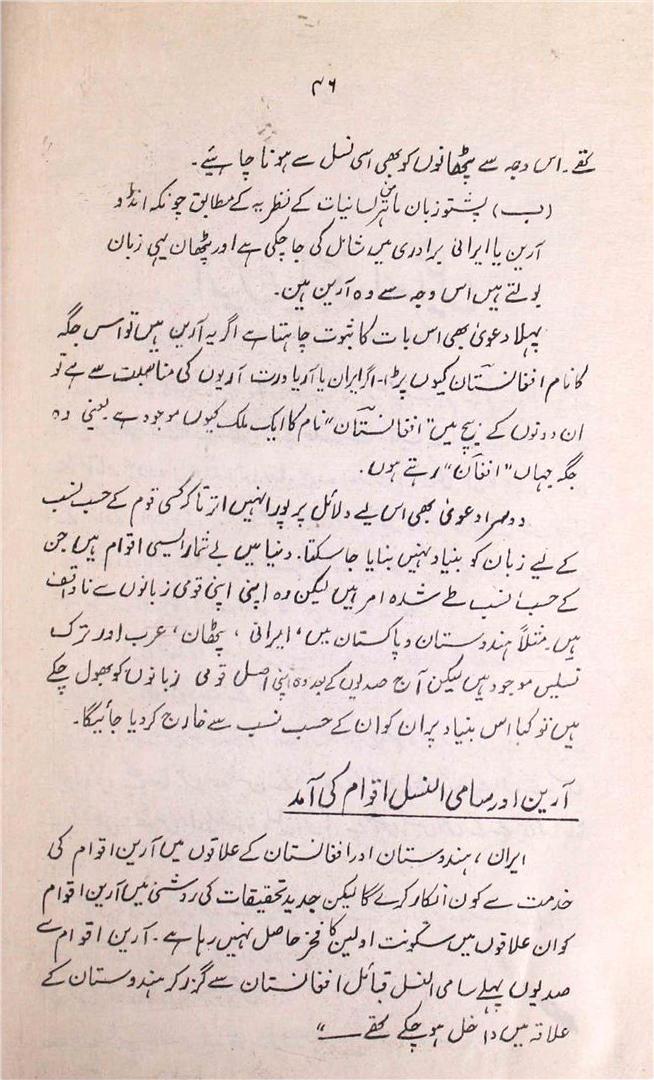 ۴۶
تھے۔ اس وجہ سے پٹھانوں کو بھی اسی نسل سے ہونا چاہیئے۔
(ب) پشتو زبان ماہرین لسانیات کے نظریہ کے مطابق چونکہ انڈو
آرین یا ایرانی برادری میں شامل کی جا چکی ہے اور پٹھان یہی زبان
بولتے ہیں اس وجہ سے وہ آرین ہین۔
پہلا دعویٰ بھی اس بات کا ثبوت چاہتا ہے اگر یہ آرین ہیں تو اس جگہ
کا نام افغانستان کیوں پڑا۔ اگر ایران یا آریا ورت آریوں کی مناسبت سے ہے تو
ان دونوں کے بیچ میں "افغانستان" نام کا ایک ملک کیوں موجود ہے یعنی وہ
جگہ جہاں "افغان" رہتے ہوں۔
دوسرا دعویٰ بھی اس لیے دلائل پر پورا نہیں اترتا کہ کسی قوم کے حسب نسب
کے لیے زبان کو بنیاد نہیں بنایا جا سکتا۔ دنیا میں بے شمار ایسی اقوام ہیں جن
کے حسب نسب طے شدہ امر ہیں لیکن وہ اپنی اپنی قومی زبانوں سے ناواقف
ہیں۔ مثلاً ہندوستان و پاکستان میں، ایرانی، پٹھان، عرب اور ترک
نسلیں موجود ہیں لیکن آج صدیوں کے بعد وہ اپنی اصل قومی زبانوں کو بھول چکے
ہیں تو کیا اس بنیاد پر ان کو ان کے حسب نسب سے خارج کر دیا جائیگا۔
آرین اور سامی النسل اقوام کی آمد
ایران، ہندوستان اور افغانستان کے علاقوں میں آرین اقوام کی
خدمت سے کون انکار کرے گا لیکن جدید تحقیقات کی روشنی میں آرین اقوام
کو ان علاقوں میں سکونت اولین کا فخر حاصل نہیں رہا ہے۔ آرین اقوام سے
صدیوں پہلے سامی النسل قبائل افغانستان سے گزر کر ہندوستان کے
علاقہ میں داخل ہو چکے تھے ــــ"